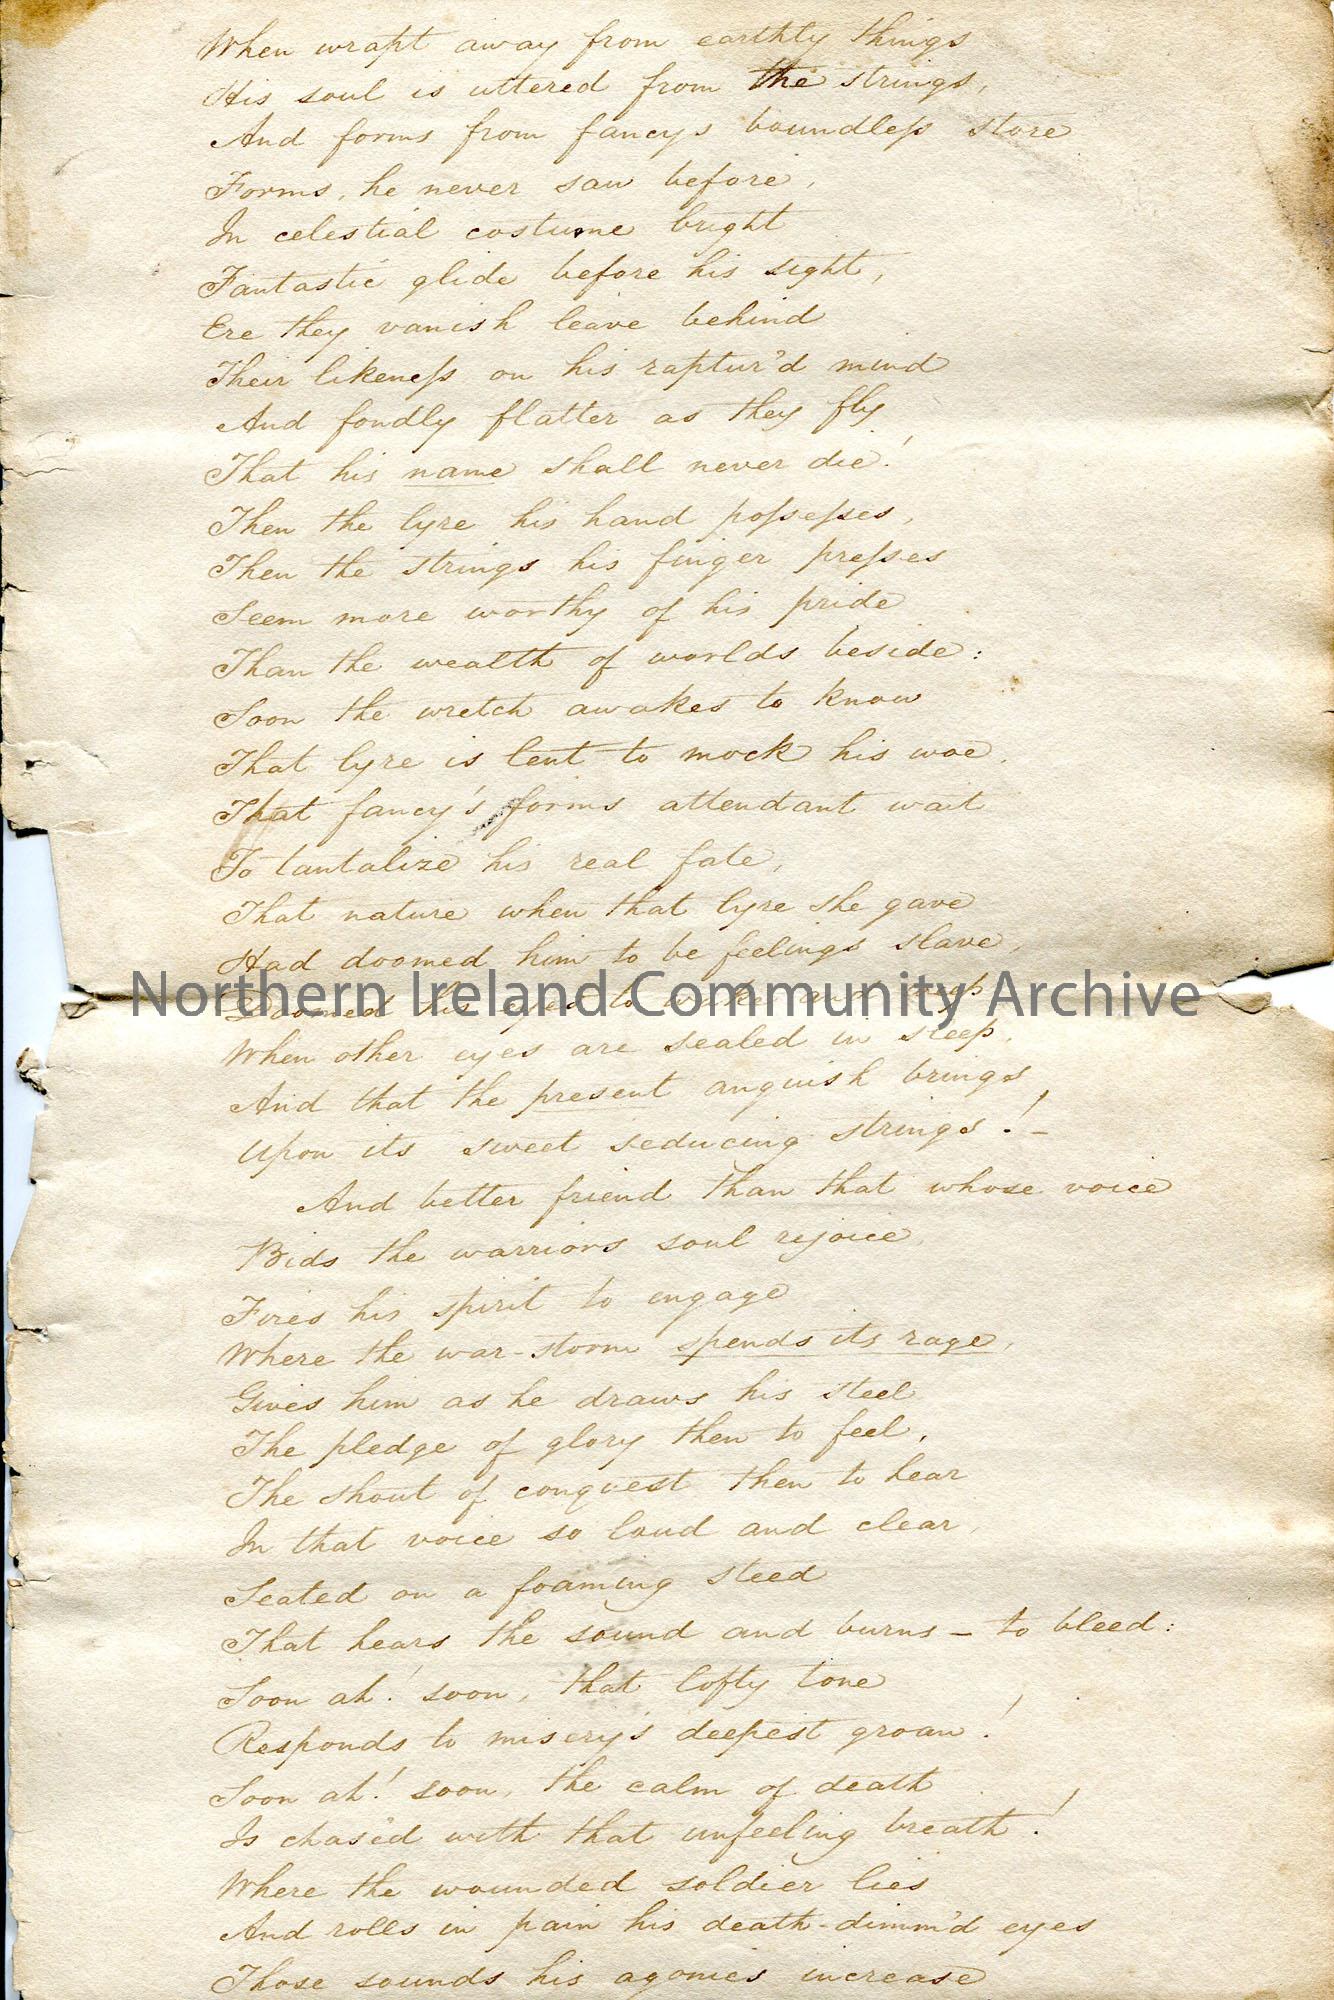 When wrapt away from earthly things
His soul is uttered from the strings,
And forms from fancys boundleſs store
Forms, he never saw before,
In celestial costume bright
Fantastic glide before his sight,
Ere they vanish leave behind
Their likeneſs on his raptur'd mind
And fondly flatter as they fly
That his name shall never die!
Then the lyre his hand poſseſses,
Then the strings his finger preſses
Seem more worthy of his pride
Than the wealth of worlds beside:
Soon the wretch awakes to know
That lyre is lent to mock his woe,
That fancy's forms attendant wait
To tantalize his real fate,
That nature when that lyre she gave
Had doomed him to be feelings slave,
Northern Ireland Community Archive
Doomed his eyes to wake and
When other eyes are sealed in sleep,
And that the present anguish brings
Upon its sweet seducing strings! –
And better friend than that whose voice
Bids the warriors soul rejoice,
Fires his spirit to engage
Where the war-storm spends its rage,
Gives him as he draws his steel
The pledge of glory then to feel,
The shout of conquest then to hear
In that voice so loud and clear,
Seated on a foaming steed
That hears the sound and burns – to bleed:
Soon ah! soon, that lofty tone
Responds to misery's deepest groan!
Soon ah! soon, the calm of death
Is chas'ed with that unfeeling breath!
Where the wounded soldier lies
And rolls in pain his death-dimm'd eyes
Those sounds his agonies increase